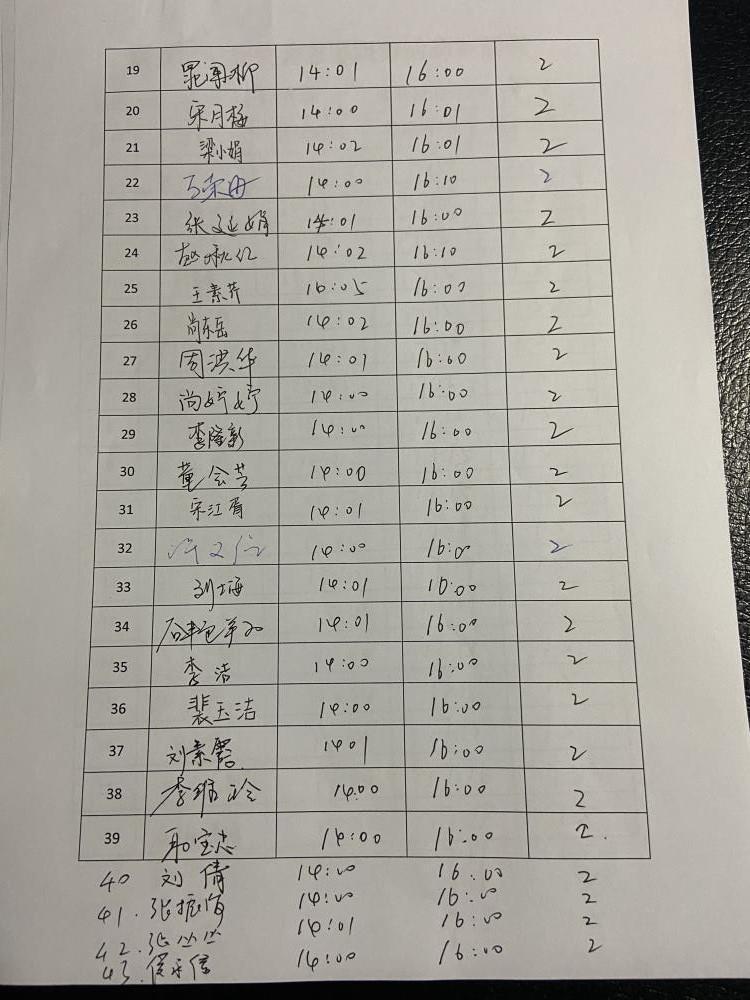 19 14:01 16:00 2
20 宋月梅 14:00 16:01 2
21 梁小娟 14:02 16:01 2
22 14:00 16:10 2
23 张延娟 14:01 16:00 2
24 赵秋红 14:02 16:10 2
25 王素芹 16:05 16:00 2
26 尚东岳 14:02 16:00 2
27 周洪华 14:01 16:00 2
28 尚婷婷 14:00 16:00 2
29 李隆彰 14:00 16:00 2
30 董会芳 14:00 16:00 2
31 宋江霄 14:01 16:00 2
32 14:00 16:00 2
33 刘海 14:01 10:00 2
34 14:01 16:00 2
35 李洁 14:00 16:00 2
36 裴玉洁 14:00 16:00 2
37 刘素霞 1401 16:00 2
38 李瑞玲 14:00 16:00 2
39 14:00 16:00 2.
40 刘倩 14:00 16:00 2
41. 张振海 14:00 16:00 2
42. 张丛丛 14:01 16:00 2
43. 14:00 16:00 2